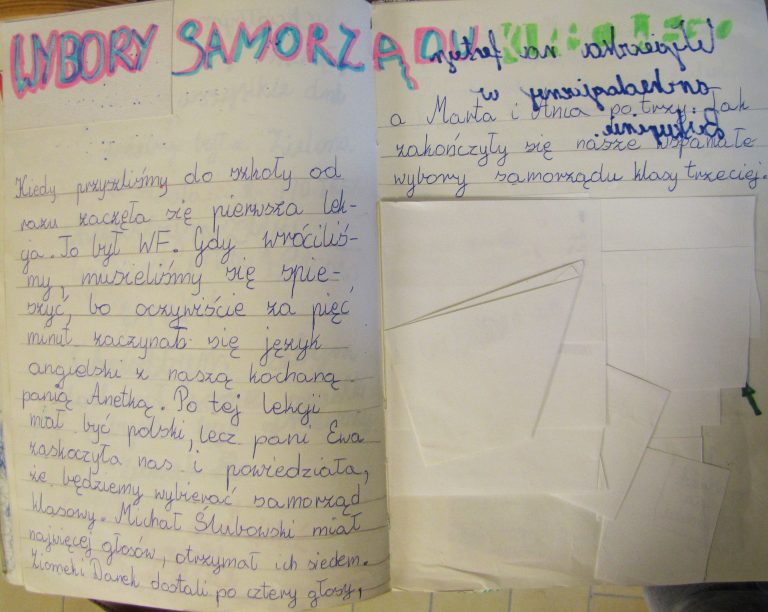 WYBORY SAMORZĄDU KLASOWEGO
Kiedy przyszliśmy do szkoły od
razu zaczęła się pierwsza lek-
cja. To był WF. Gdy wróciliś-
my, musieliśmy się spie-
szyć, bo oczywiście za pięć
minut zaczynał się język
angielski z naszą kochaną
panią Anetką. Po tej lekcji
miał być polski, lecz pani Ewa
zaskoczyła nas i powiedziała,
że będziemy wybierać samorząd
klasowy. Michał Ślubowski miał
najwięcej głosów, otrzymał ich siedem.
Ziomek i Darek dostali po cztery głosy,
a Marta i Ania po trzy. Tak
zakończyły się nasze wspaniałe
wybory samorządu klasy trzeciej.
Wycieczka na festyn
archeologiczny w
Biskupinie.